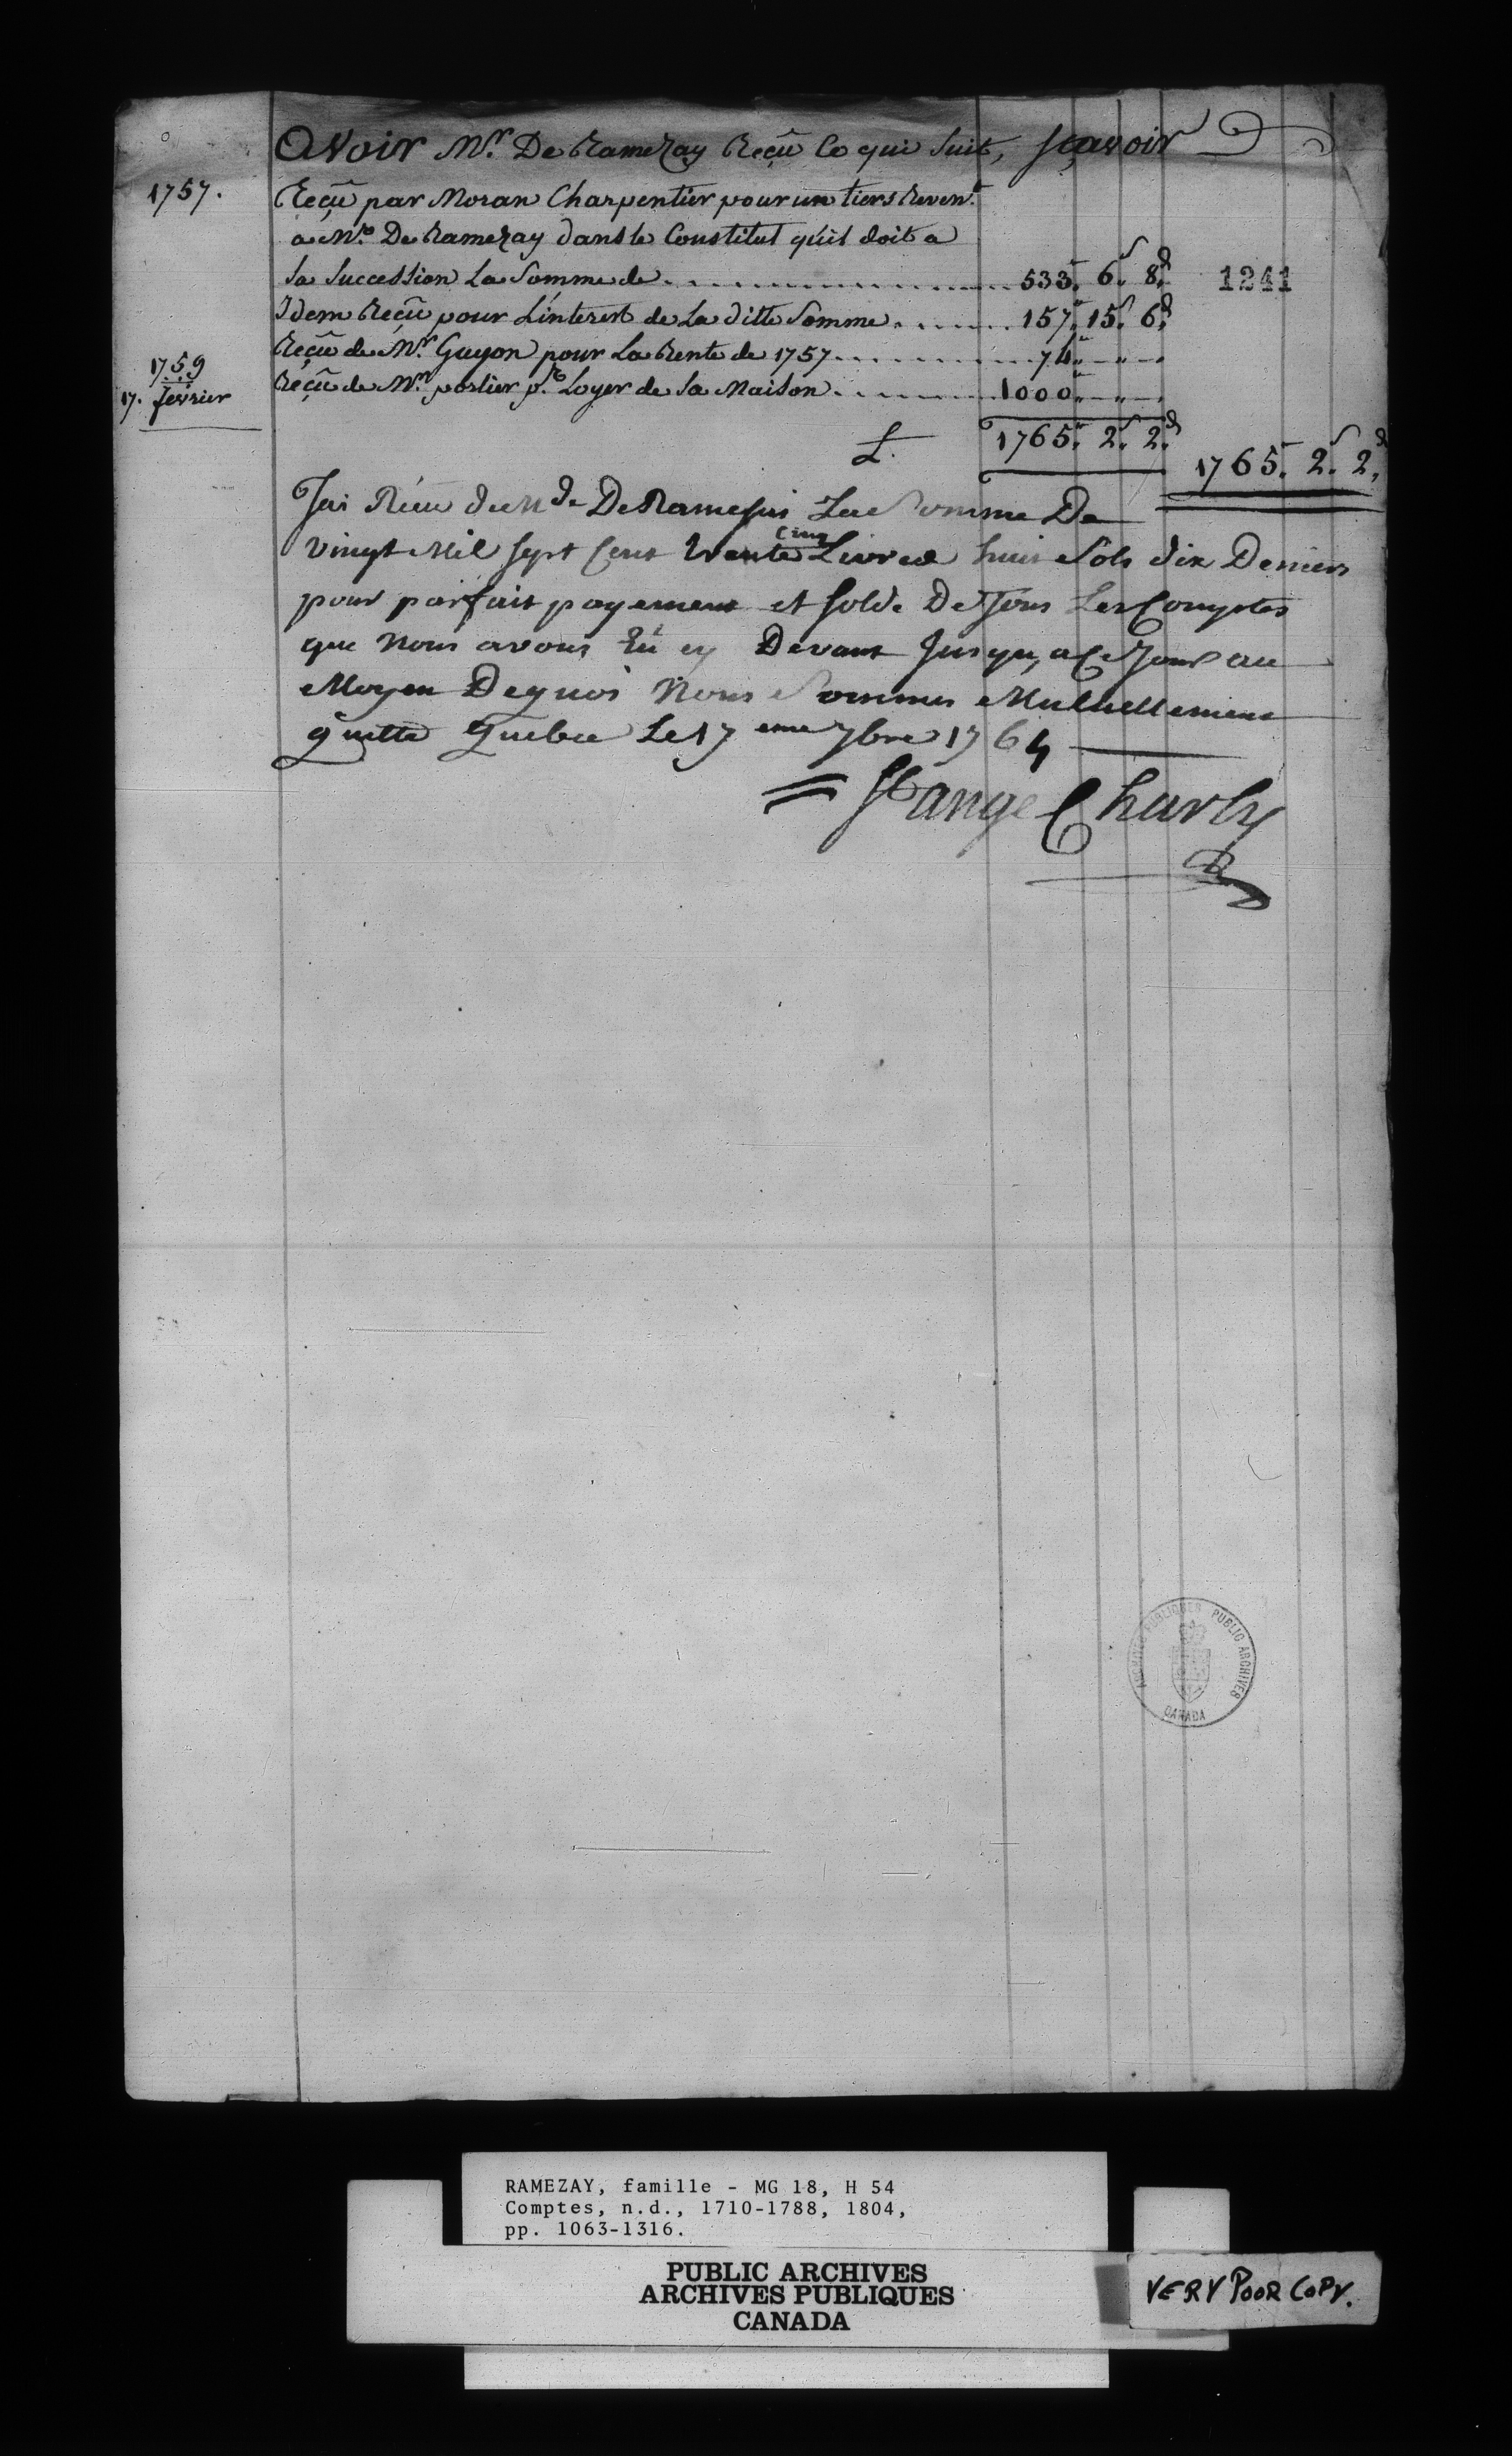 Avoir Mr. De Ramezay Reçû Ce qui Suit, sçavoir
1757.
Reçû par Moran Charpentier pour un tiers Reven.t
a Mr. De Ramezay dans le Constitut qu'il doit a
la Succession La Somme de 533. 6.s 8.d
1241
Idem Reçû pour L'interest de La ditte Somme 157. 15.s 6.d
Reçû de Mr. Guyon pour La Rente de 1757 74. " "
1759
17. fevrier
Reçû de Mr. portier pr. Loyer de La Maison 1000. " "
L. 1765. 2.s 2.d
1765. 2.s 2.d
Jai Réeu de Mde De Ramesai La Somme De
vingt Mil sept Cent trente Cinq Livres huit Sols dix Deniers
pour parfait payement et solde De Tous Les Comptes
que Nous avons Eû cy Devant Jusqu,a Ce Jour au
Moyen De quoi Nous Sommes Mutuellement
quitte Quebec Le 17 eme 7bre 1764
St ange Charly
ARCHIVES PUBLIQUES PUBLIC ARCHIVES
CANADA
RAMEZAY, famille - MG 18, H 54
Comptes, n.d., 1710-1788, 1804,
pp. 1063-1316.
PUBLIC ARCHIVES
ARCHIVES PUBLIQUES
CANADA
VERY POOR COPY.